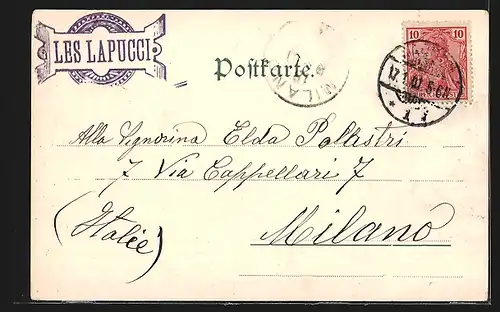 LES LAPUCCI
Postkarte.
MILANO
10 10
Alla Signorina Elda Pollastri
7 Via Cappellari 7
(Italie)
Milano